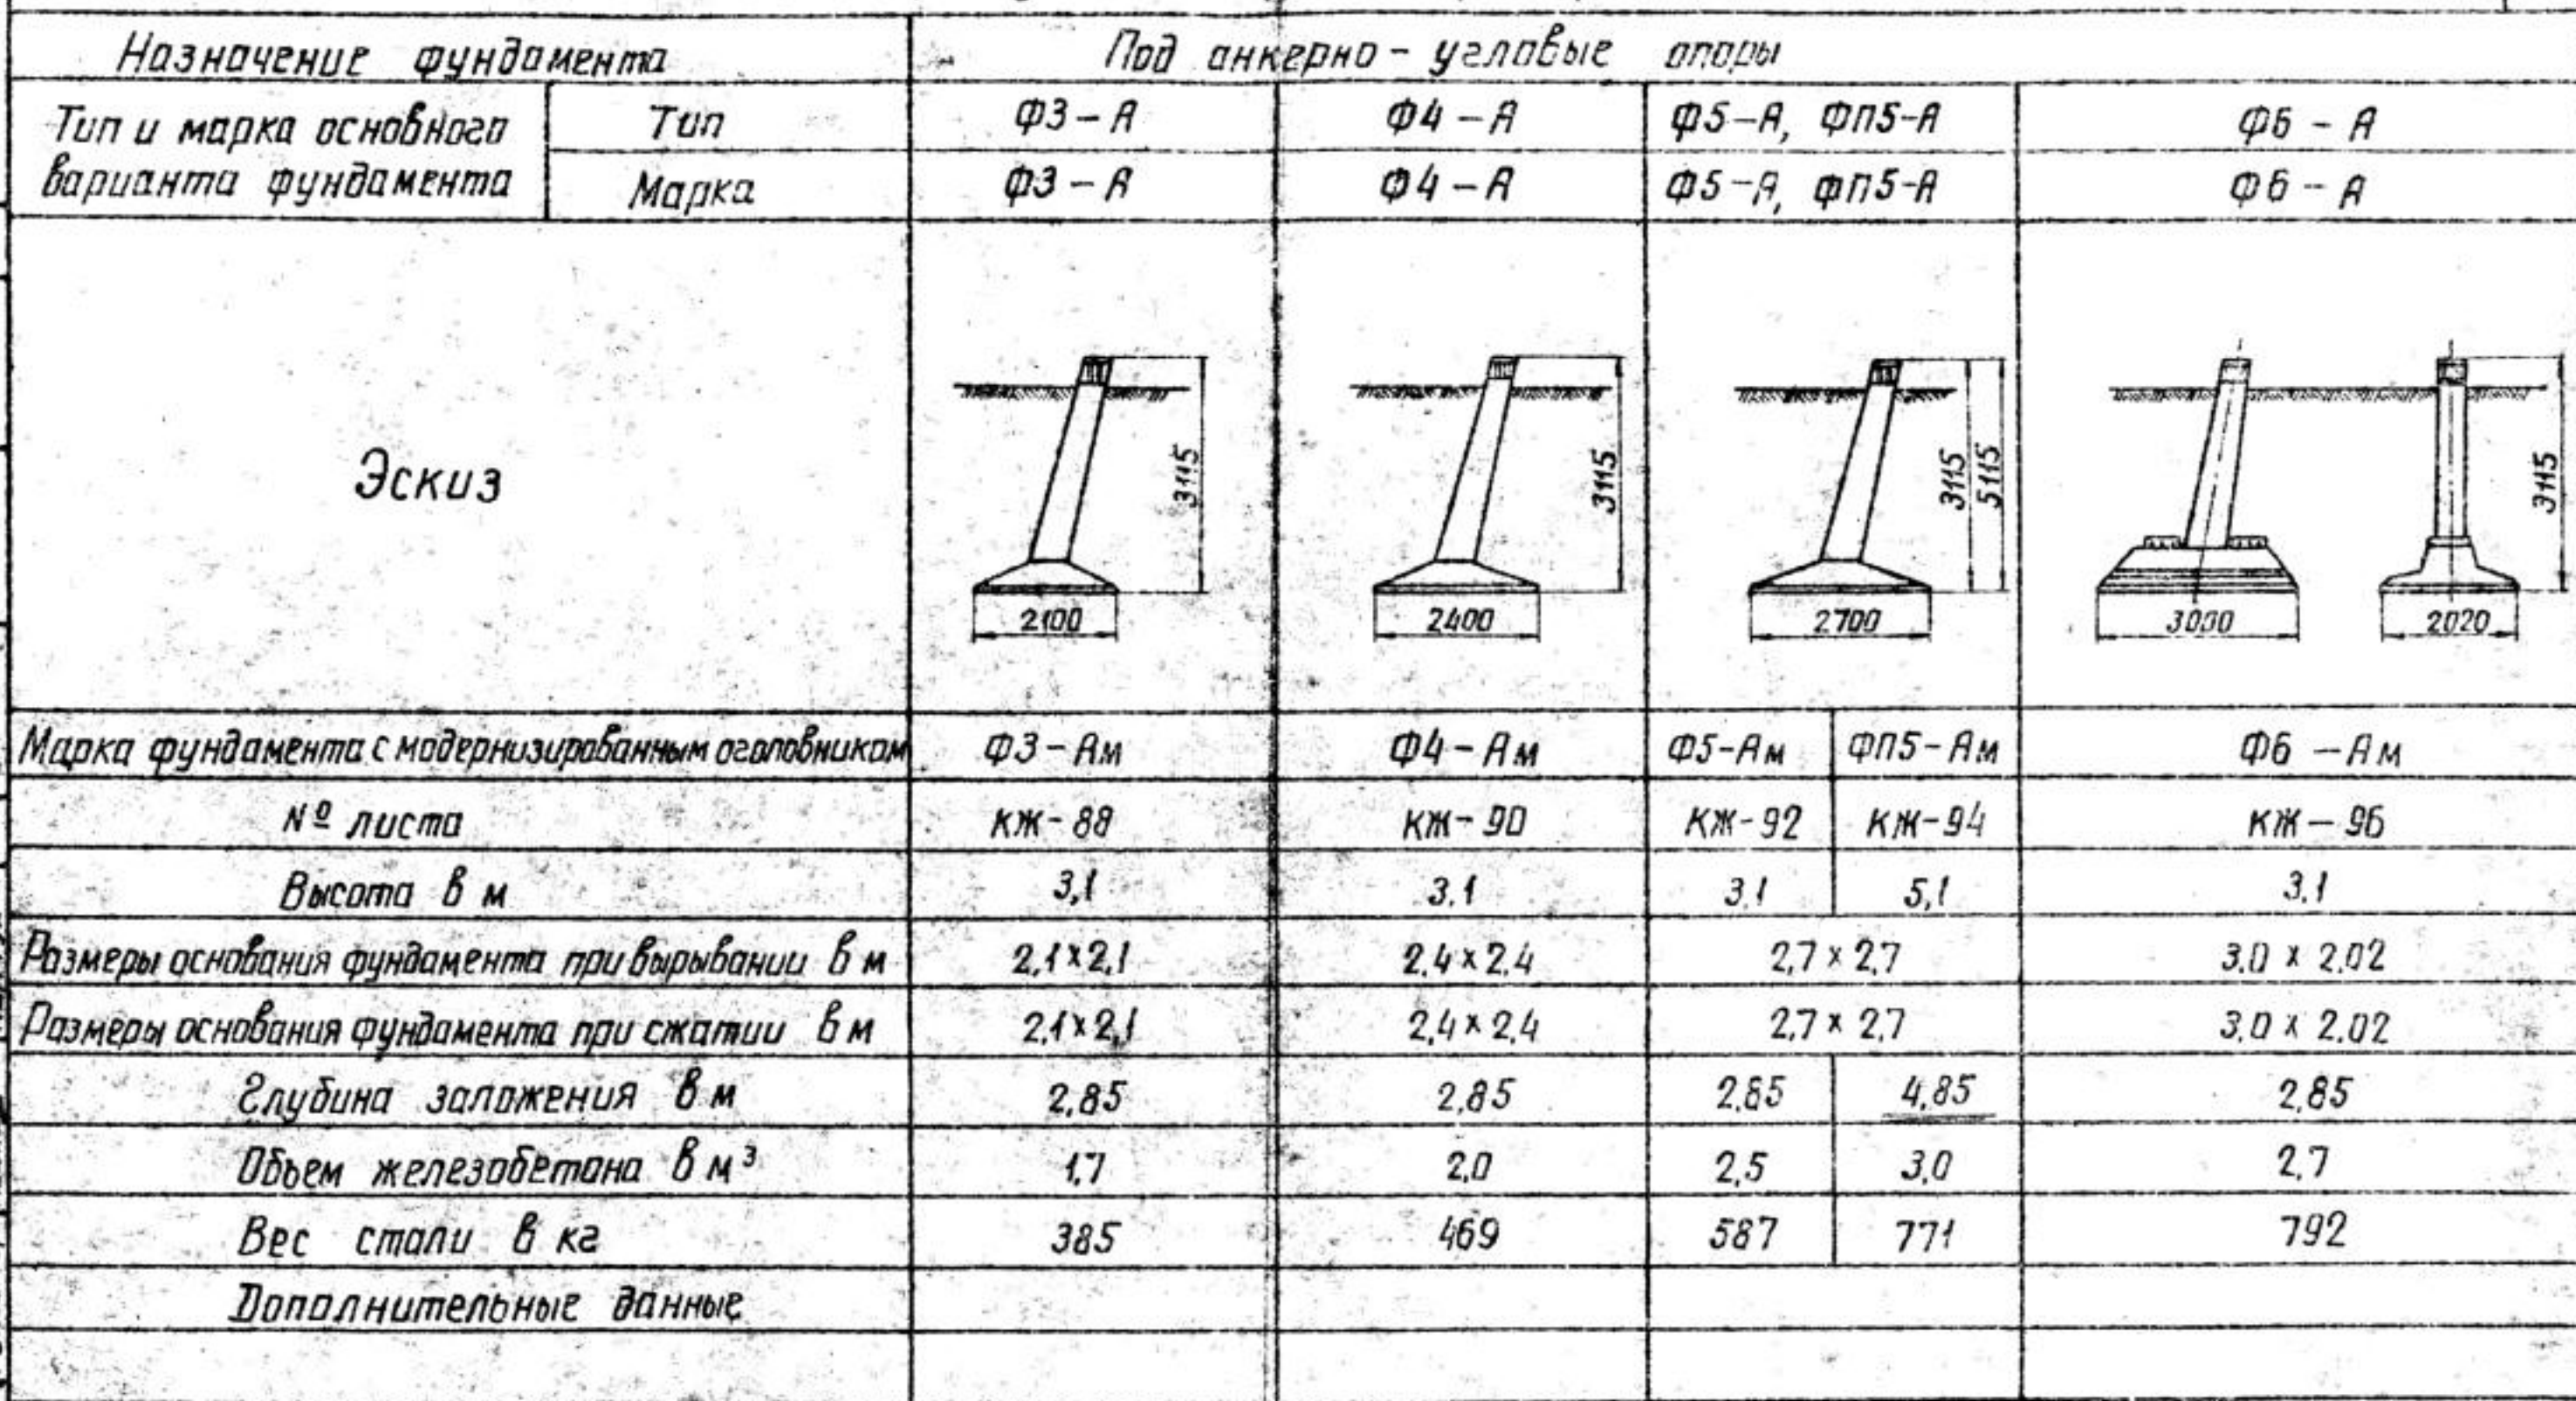 Назначение фундамента Под анкерно - угловые опоры
Тип и марка основного варианта фундамента Тип Ф3-А Ф4-А Ф5-А, ФП5-А Ф6-А
Марка Ф3-А Ф4-А Ф5-А, ФП5-А Ф6-А
Эскиз
3115 3115 3115 5115 3115
2100 2400 2700 3000 2020
Марка фундамента с модернизированным оголовником Ф3-Ам Ф4-Ам Ф5-Ам ФП5-Ам Ф6-Ам
№ листа КЖ-88 КЖ-90 КЖ-92 КЖ-94 КЖ-96
Высота в м 3,1 3.1 3.1 5,1 3.1
Размеры основания фундамента при вырывании в м 2.1×2.1 2.4×2.4 2.7×2.7 3.0 x 2.02
Размеры основания фундамента при сжатии в м 2.1×2.1 2.4×2.4 2.7×2.7 3.0 x 2.02
Глубина заложения в м 2.85 2.85 2.85 4.85 2.85
Объем железобетона в м³ 1.7 2.0 2.5 3.0 2.7
Вес стали в кг 385 469 587 771 792
Дополнительные данные